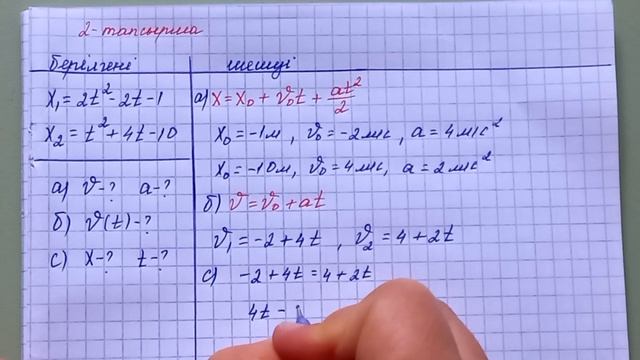 2-тапсырма
берілгені
x₁ = 2t² - 2t - 1
x₂ = t² + 4t - 10
а) υ-? a-?
б) υ(t)-?
с) x-? t-?
шешуі
а) x = x₀ + υ₀t + at²/2
x₀ = -1м, υ₀ = -2м/с, a = 4м/с²
x₀ = -10м, υ₀ = 4м/с, a = 2м/с²
б) υ = υ₀ + at
υ₁ = -2 + 4t, υ₂ = 4 + 2t
с) -2 + 4t = 4 + 2t
4t -